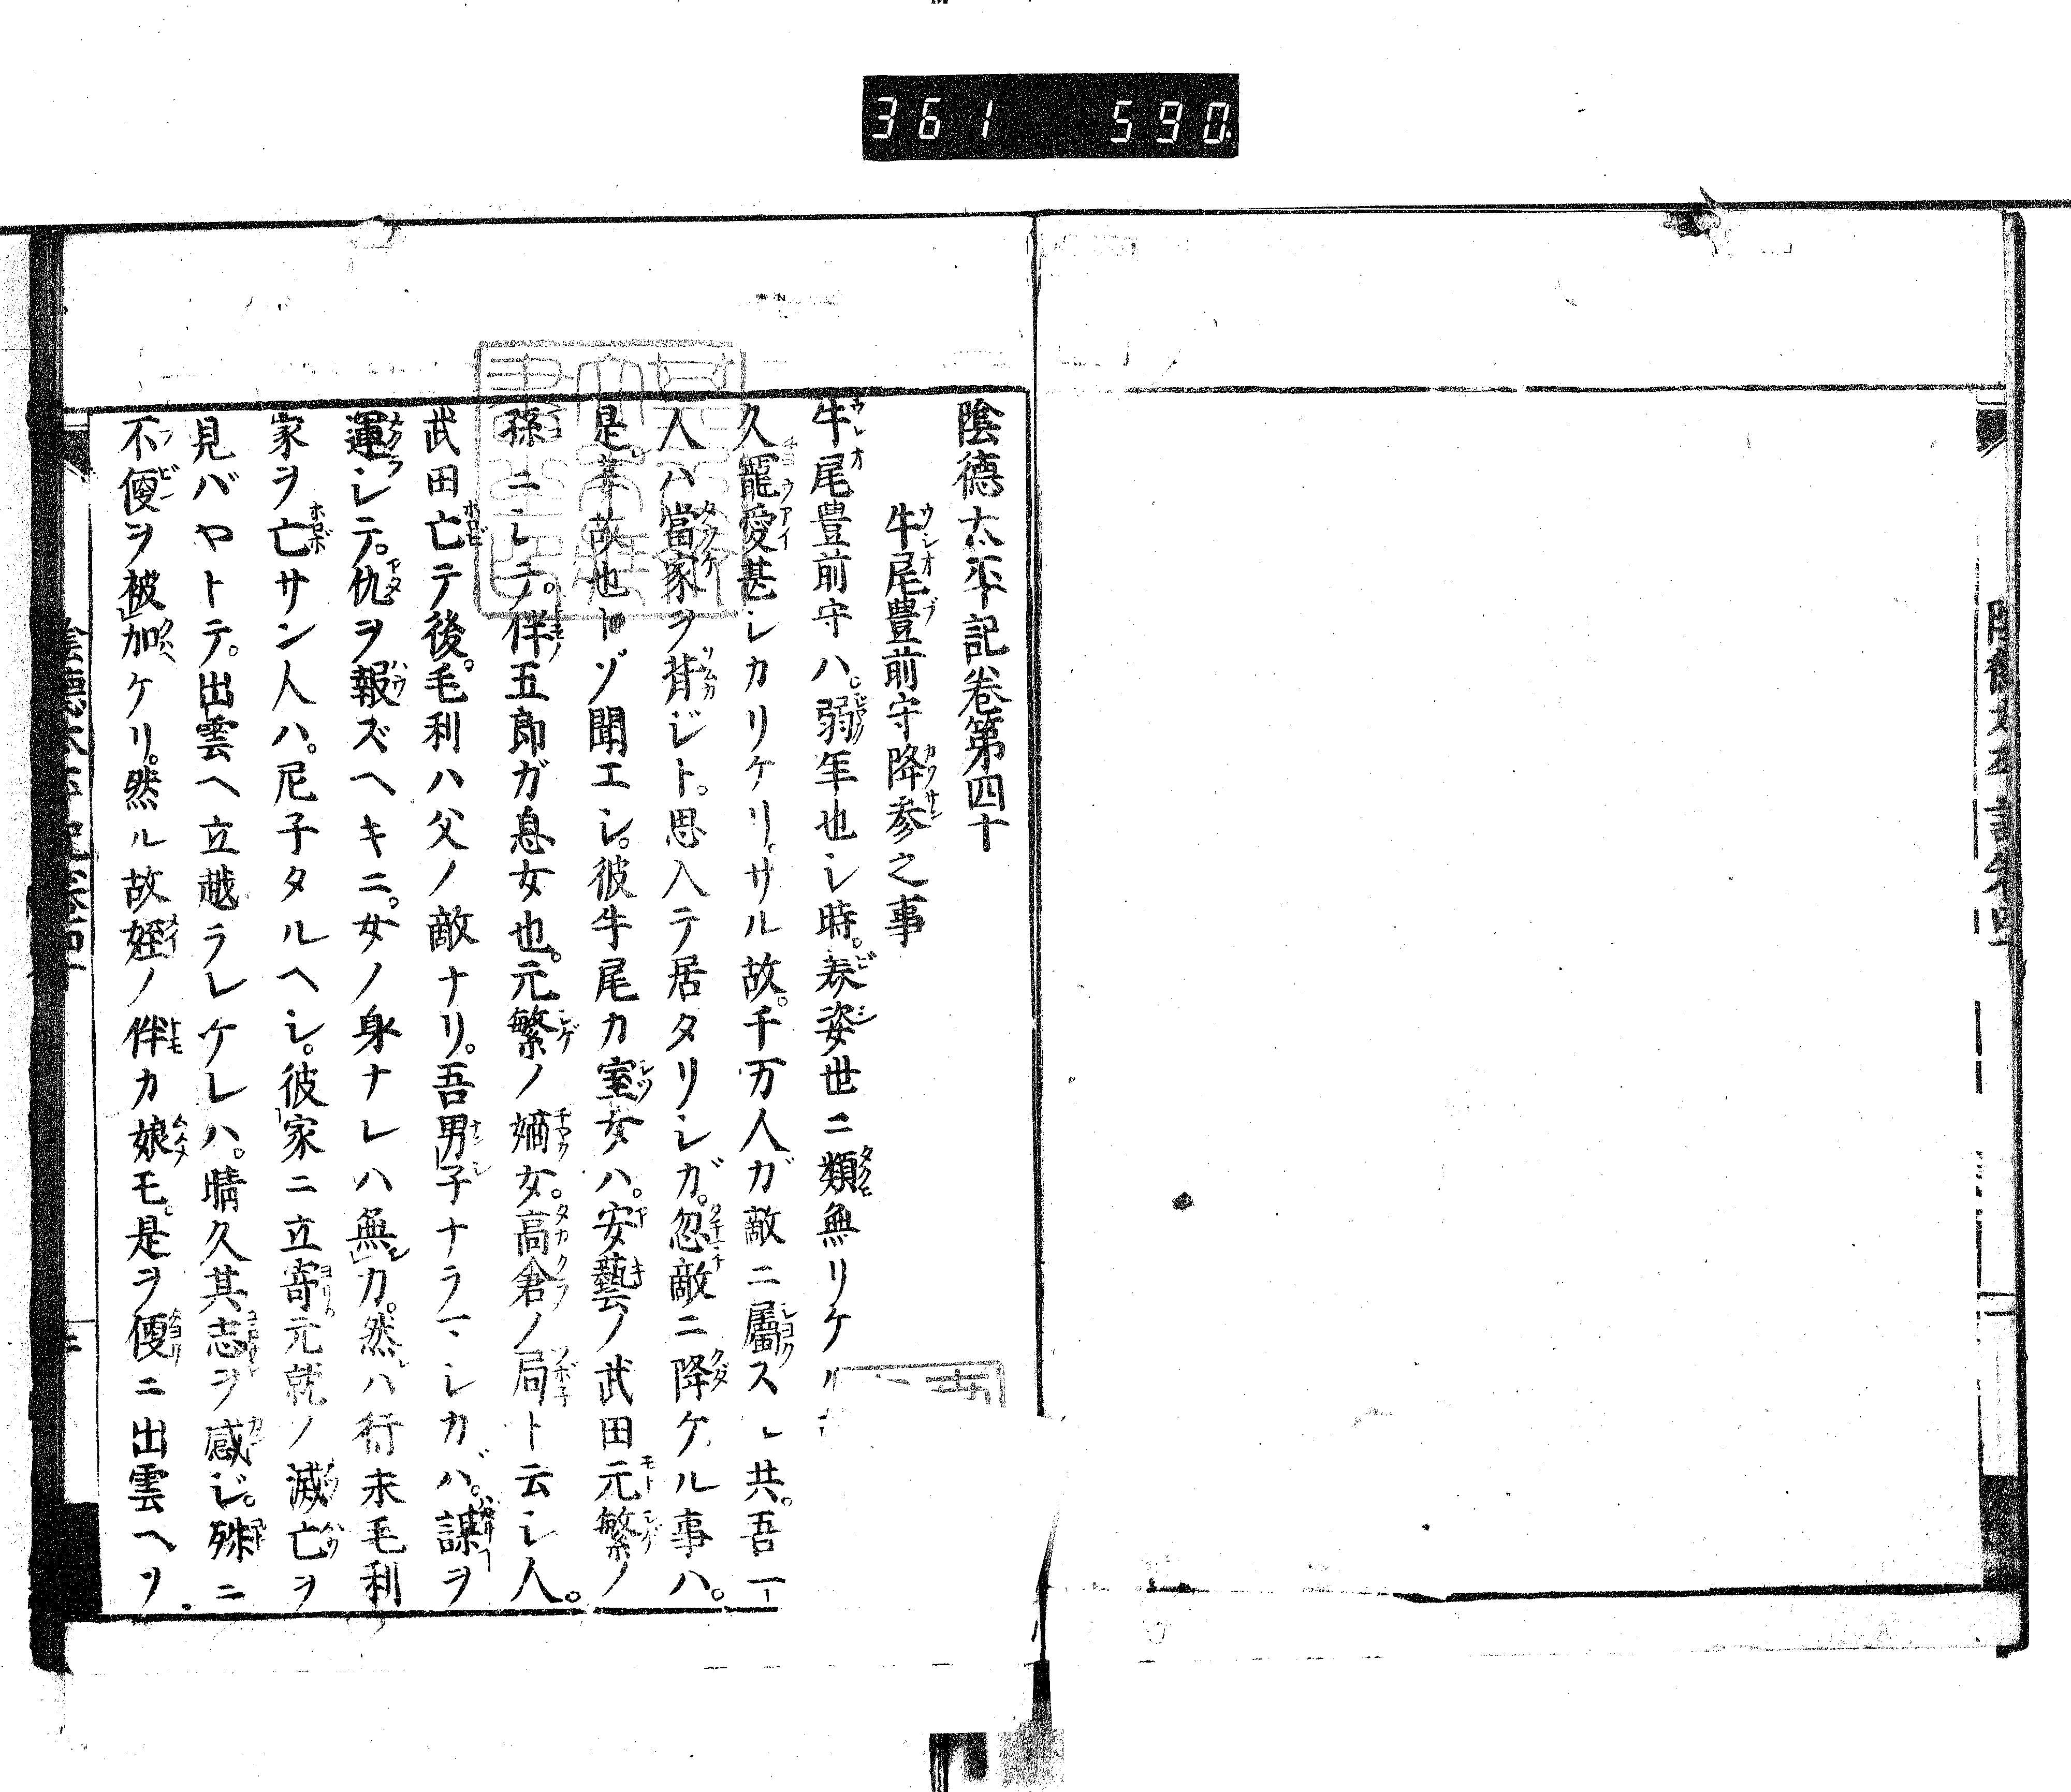 361 590
陰德太平記卷第四十
牛尾豊前守降参之事
牛尾豊前守ハ。弱年也シ時。美姿世ニ類無リケル
久寵愛甚シカリケリ。サル故。千万人ガ敵ニ屬スレ共。吾一
人ハ當家ヲ背ジト。思入テ居タリシガ。忽敵ニ降ケル事ハ。
是。故也トゾ聞エシ。彼牛尾カ室女ハ。安藝ノ武田元繁ノ
孫ニシテ。伴五郎ガ息女也。元繁ノ嫡女。高倉ノ局ト云シ人。
武田亡テ後。毛利ハ父ノ敵ナリ。吾男子ナラマシカバ。謀ヲ
運シテ。仇ヲ報ズヘキニ。女ノ身ナレハ無力。然ハ行末毛利
家ヲ亡サン人ハ。尼子タルヘシ。彼家ニ立寄。元就ノ滅亡ヲ
見バヤトテ。出雲ヘ立越ラレケレハ。晴久其志ヲ感ジ。殊ニ
不便ヲ被加ケリ。然ル故姪ノ伴カ娘モ。是ヲ便ニ出雲ヘソ